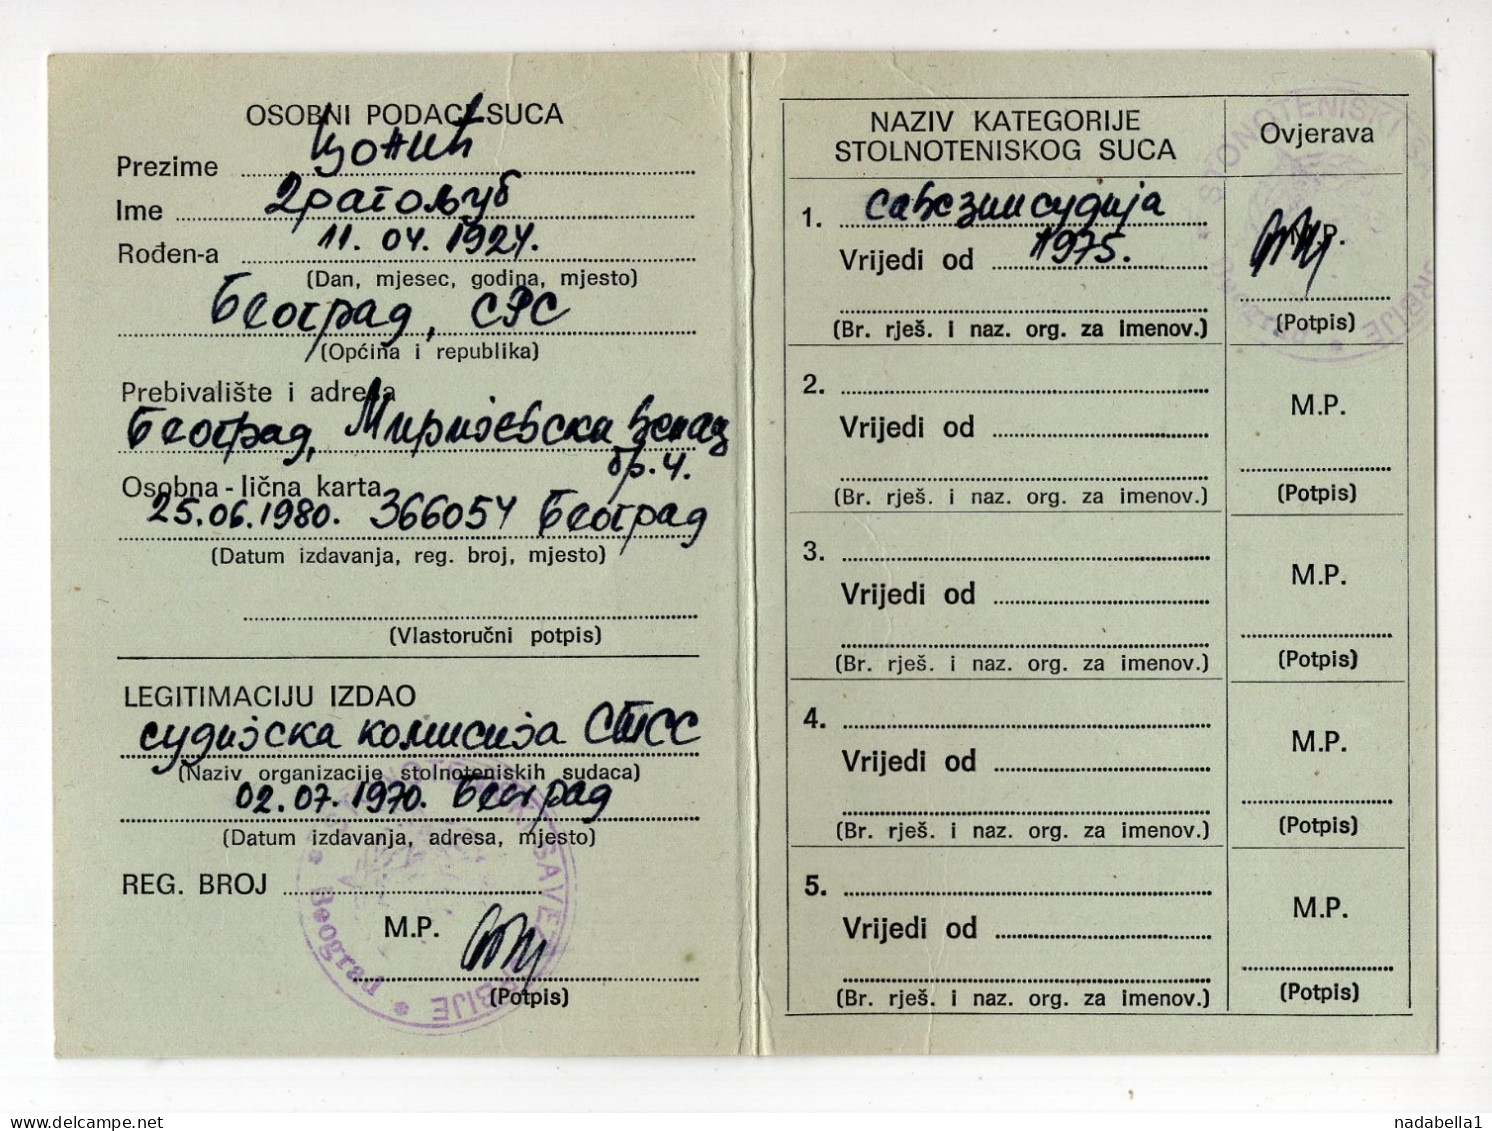 OSOBNI PODACI SUCA
Prezime Цонић
Ime Драгољуб
Rođen-a 11.04.1924.
(Dan, mjesec, godina, mjesto)
Београд, СРС
(Općina i republika)
Prebivalište i adresa
Београд, Миријевски венац
бр. 4.
Osobna - lična karta
25.06.1980. 366054 Београд
(Datum izdavanja, reg. broj, mjesto)
(Vlastoručni potpis)
LEGITIMACIJU IZDAO
судијска комисија СТСС
(Naziv organizacije stolnoteniskih sudaca)
02.07.1970. Београд
(Datum izdavanja, adresa, mjesto)
REG. BROJ
M.P.
(Potpis)
SAVEZ SRBIJE * Beograd *
NAZIV KATEGORIJE
STOLNOTENISKOG SUCA
Ovjerava
STONOTENISKI SAVEZ SRBIJE * Beograd *
1. савезни судија
Vrijedi od 1975.
M.P.
(Br. rješ. i naz. org. za imenov.)
(Potpis)
2.
Vrijedi od
M.P.
(Br. rješ. i naz. org. za imenov.)
(Potpis)
3.
Vrijedi od
M.P.
(Br. rješ. i naz. org. za imenov.)
(Potpis)
4.
Vrijedi od
M.P.
(Br. rješ. i naz. org. za imenov.)
(Potpis)
5.
Vrijedi od
M.P.
(Br. rješ. i naz. org. za imenov.)
(Potpis)
nadabella1